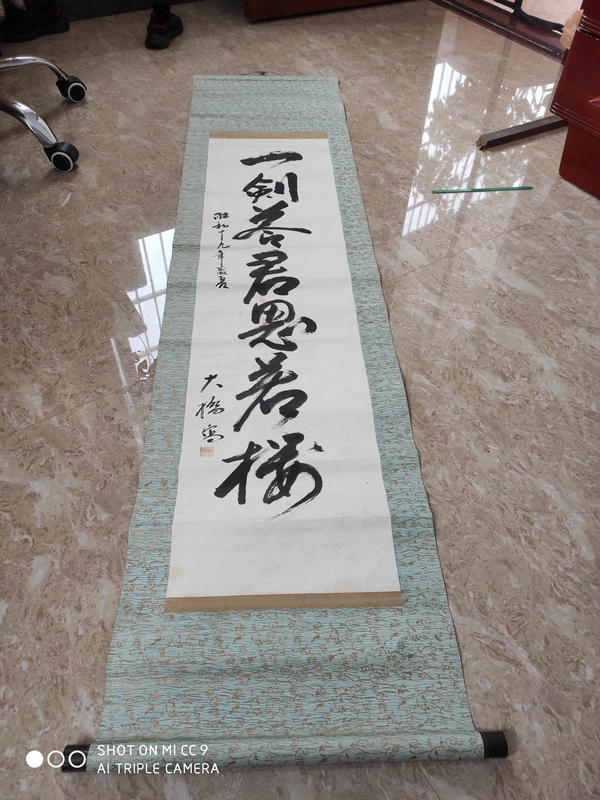 一剣答君恩若桜
昭和十九年夏
大橋写
SHOT ON MI CC 9
AI TRIPLE CAMERA